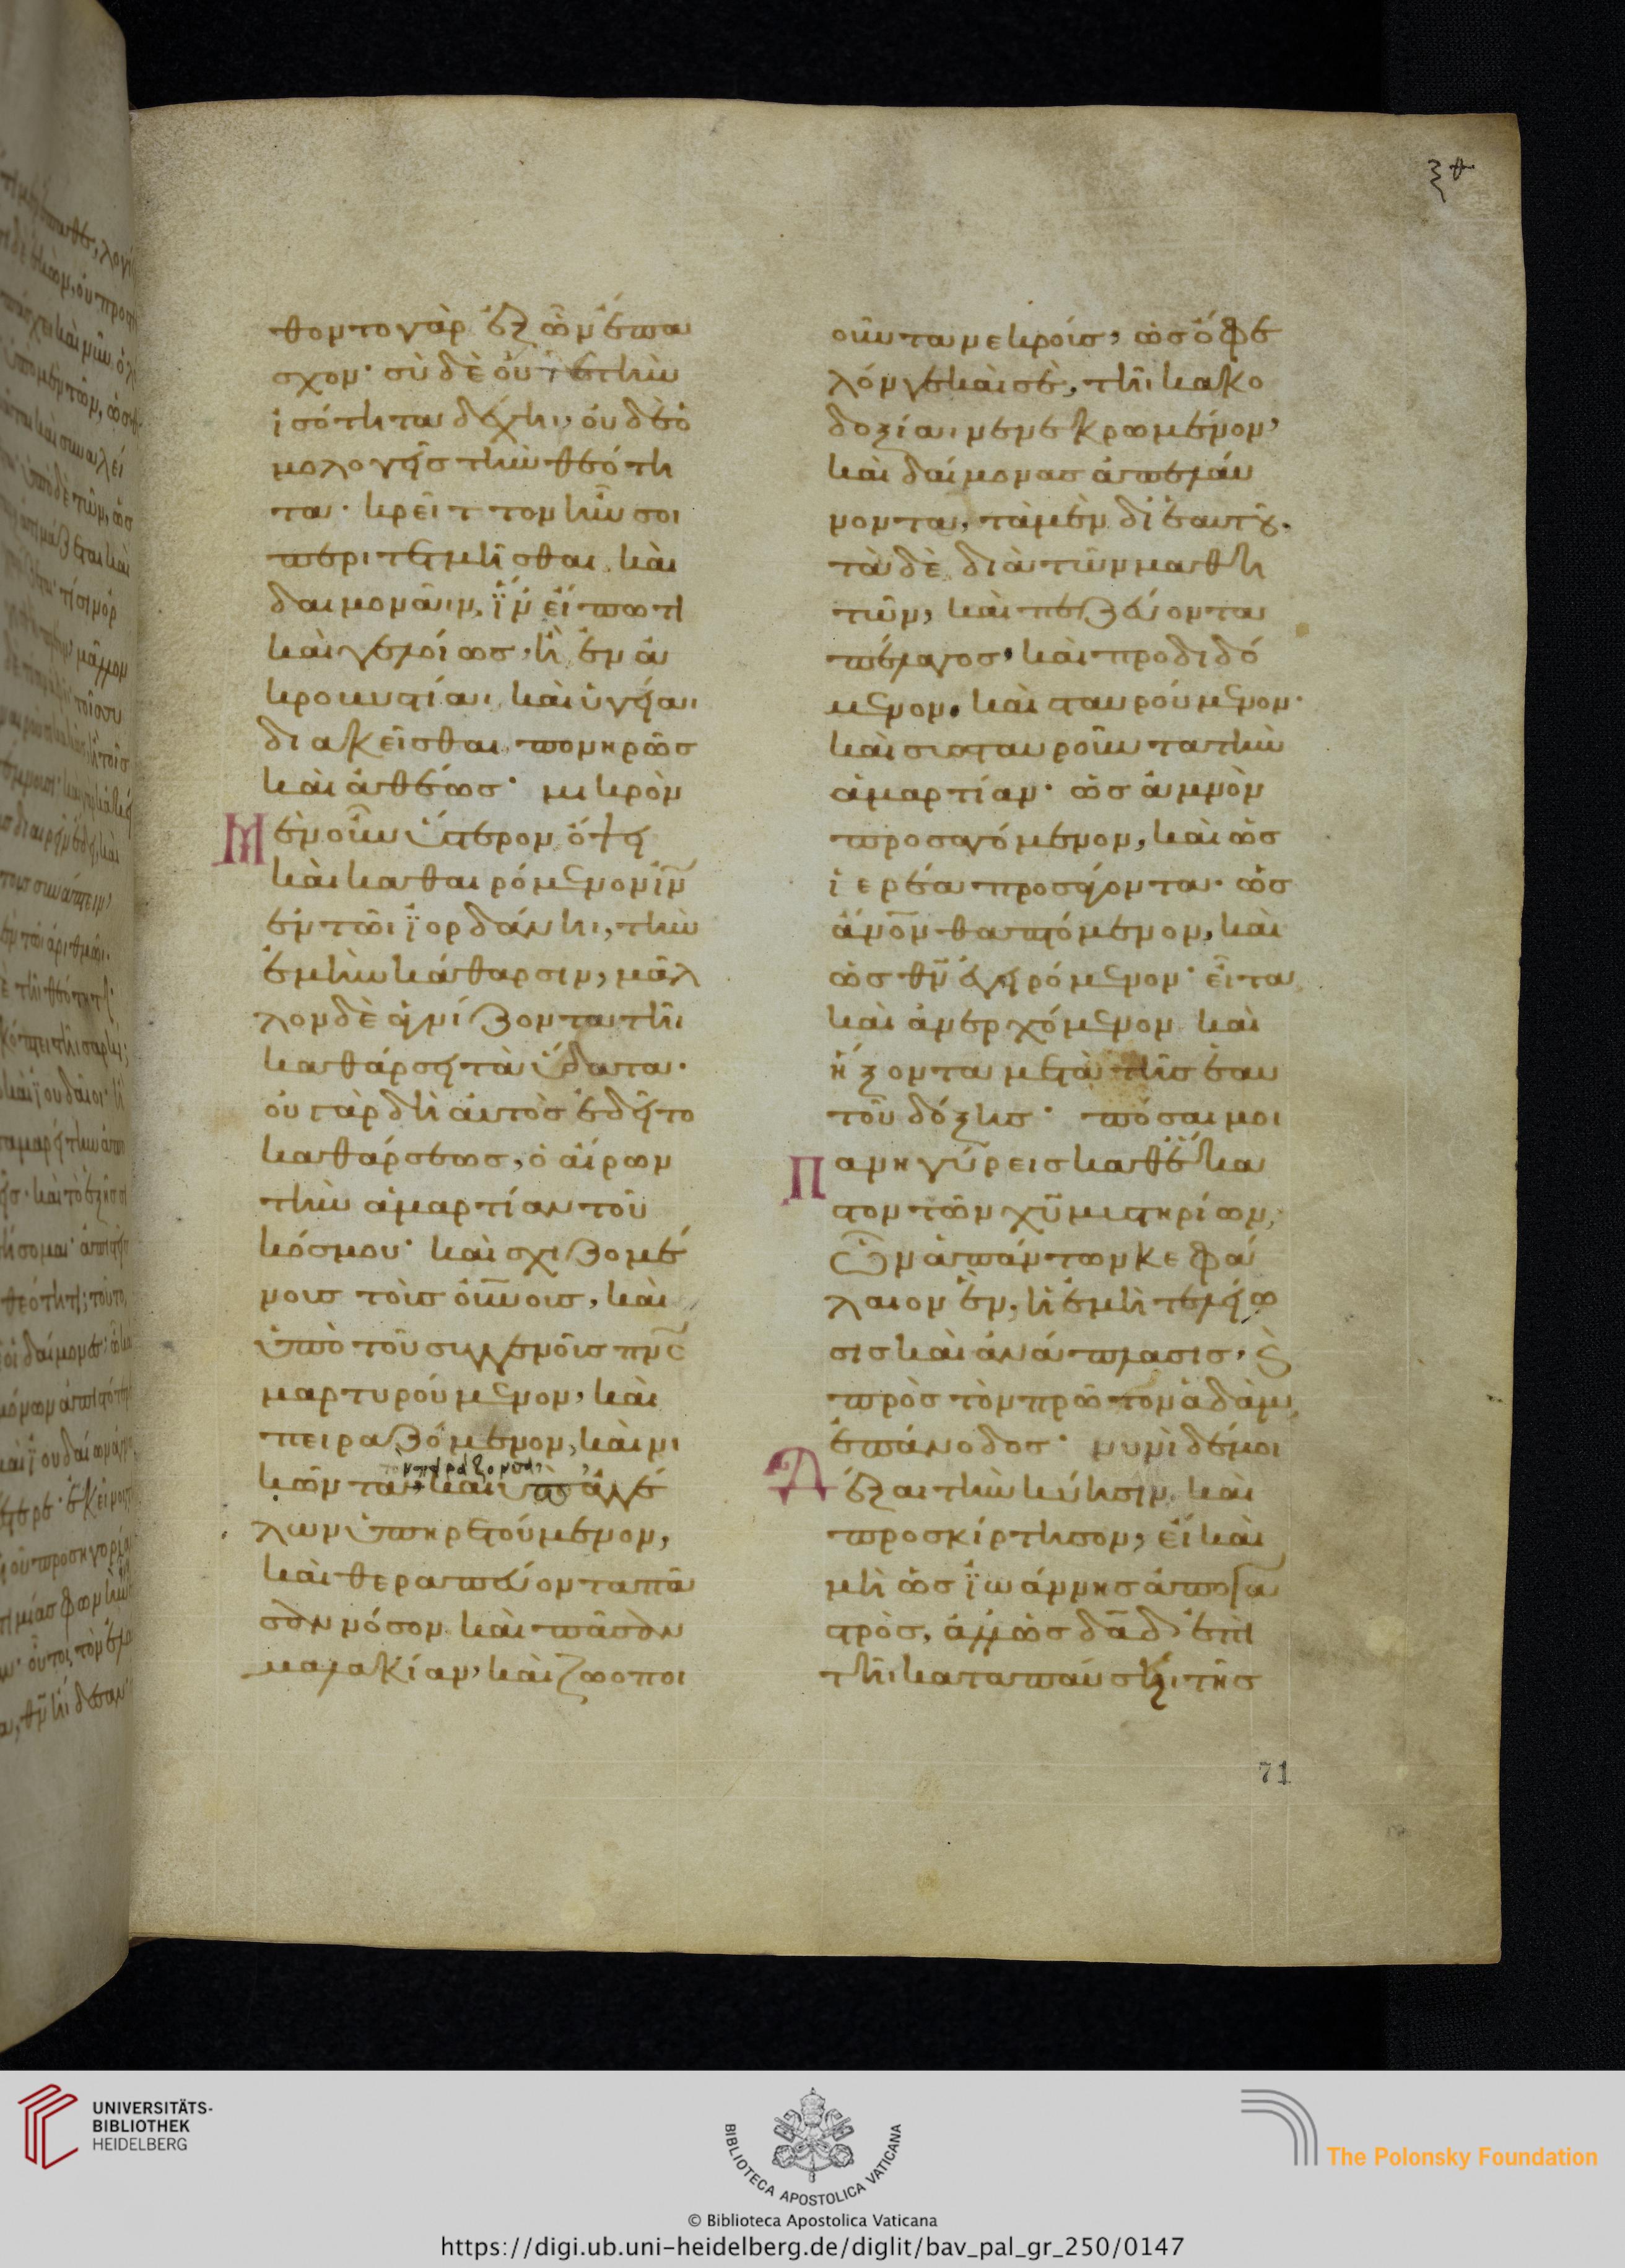 ξθ
θοντο γὰρ ἐξ ὧν ἔπα
σχον· σὺ δὲ οὔτε τὴν
ἰσότητα δέχηι, οὐδὲ ὁ
μολογεῖς τὴν θεότη
τα· κρεῖττον ἦν σοι
περιτετμῆσθαι καὶ
δαιμονᾶιν, ἵν' εἴπω τὶ
καὶ γελοίως, ἢ ἐν ἀ
κροβυστίαι καὶ ὑγείαι
διακεῖσθαι πονηρῶς
καὶ ἀθέως· μικρὸν
Μὲν οὖν ὕστερον ὄψει
καὶ καθαιρόμενον ἰν
ἐν τῶι ἰορδάνηι, τὴν
ἐμὴν κάθαρσιν, μᾶλ
λον δὲ ἁγνίζοντα τῆι
καθάρσει τὰ ὕδατα·
οὐ γὰρ δὴ αὐτὸς ἐδεῖτο
καθάρσεως, ὁ αἴρων
τὴν ἁμαρτίαν τοῦ
κόσμου· καὶ σχιζομέ
νους τοὺς οὐνους, καὶ
ὑπὸ τοῦ συγγενοῦς πνς
μαρτυρούμενον, καὶ
πειραζόμενον, καὶ νι
τὸν πειράζοντα
κῶντα, καὶ ὑπ' ἀγγέ
λων ὑπηρετούμενον,
καὶ θεραπεύοντα πᾶ
σαν νόσον καὶ πᾶσαν
μαλακίαν, καὶ ζωοποι
οῦντα νεκρούς, ὡς ὄφε
λόν γε καὶ σὲ, τῆι κακο
δοξίαι νενεκρωμένον,
καὶ δαίμονας ἀπελαύ
νοντα, τὰ μὲν δι' ἑαυτοῦ.
τὰ δὲ διὰ τῶν μαθη
τῶν, καὶ πεζεύοντα
πέλαγος, καὶ προδιδό
μενον. καὶ σταυρούμενον·
καὶ συσταυροῦντα τὴν
ἁμαρτίαν· ὡς ἀμνὸν
προσαγόμενον, καὶ ὡς
ἱερέα προσάγοντα· ὡς
ἄνον θαπτόμενον, καὶ
ὡς θν ἐγειρόμενον· εἶτα
καὶ ἀνερχόμενον καὶ
ἥξοντα μετὰ τῆς ἑαυ
τοῦ δόξης· πόσαι μοι
Πανηγύρεις καθ' ἕκα
στον τῶν χυ μυστηρίων,
ὧν ἁπάντων κεφά
λαιον ἕν, ἡ ἐμὴ τελείω
σις καὶ ἀνάπλασις, καὶ
πρὸς τὸν πρῶτον ἀδὰμ
ἐπάνοδος· νυνὶ δέ μοι
Δέξαι τὴν κύησιν καὶ
προσκίρτησον, εἰ καὶ
μὴ ὡς ἰωάννης ἀπὸ γα
στρὸς, ἀλλ' ὡς δαδ ἐπὶ
τῆι καταπαύσει τῆς
71
UNIVERSITÄTS-
BIBLIOTHEK
HEIDELBERG
BIBLIOTECA APOSTOLICA VATICANA
The Polonsky Foundation
© Biblioteca Apostolica Vaticana
https://digi.ub.uni-heidelberg.de/diglit/bav_pal_gr_250/0147